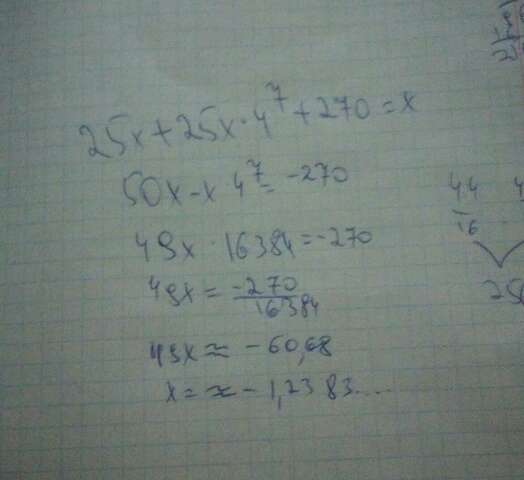 25x+25x·4⁷+270=x
50x-x·4⁷=-270
49x·16384=-270
49x=-270/16384
49x≈-60,68
x=≈-1,2383....
44
16